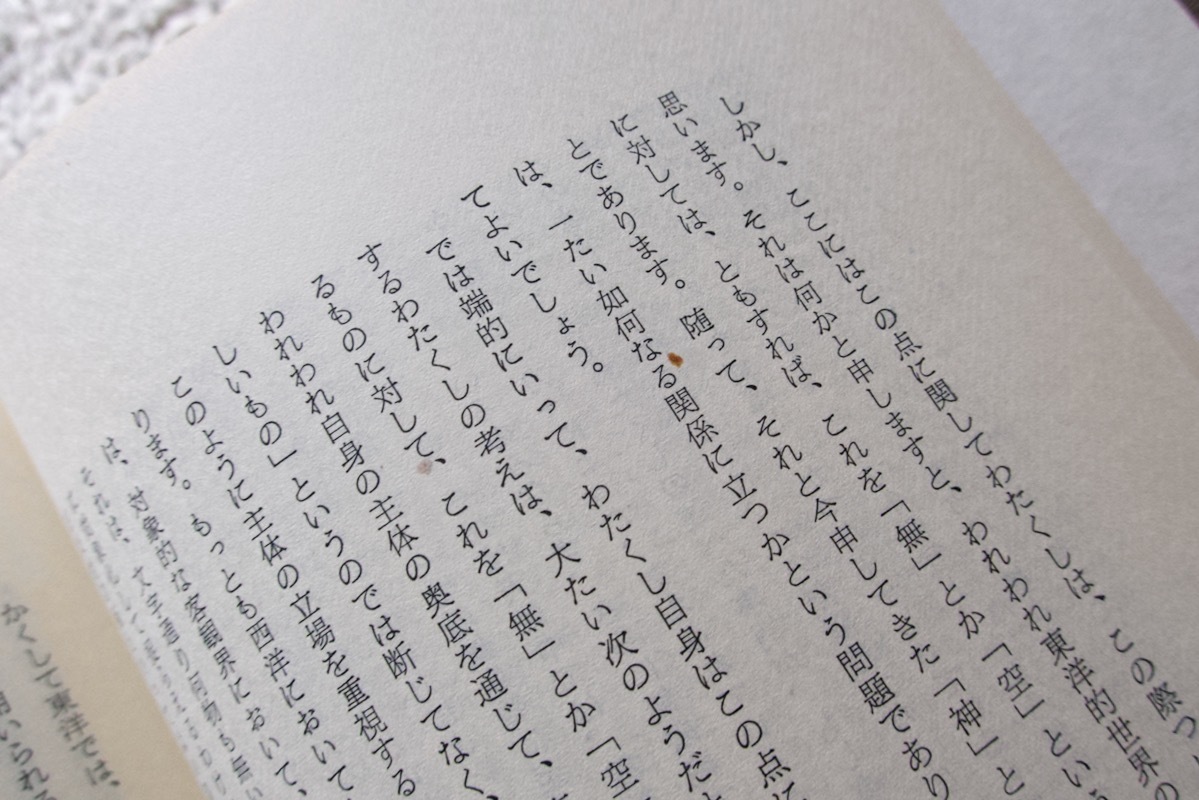 しかし、ここにはこの点に関してわたくしは、この際つ
思います。それは何かと申しますと、われわれ東洋的世界の
に対しては、ともすれば、これを「無」とか「空」という
とであります。随って、それと今申してきた「神」と
は、一たい如何なる関係に立つかという問題であり
てよいでしょう。
では端的にいって、わたくし自身はこの点に
するわたくしの考えは、大たい次のようだと
るものに対して、これを「無」とか「空
われわれ自身の主体の奥底を通じて、
しいもの」というのでは断じてなく、
このように主体の立場を重視する
ります。もっとも西洋において
は、対象的な客観界において、
それは、文字通り何物も無い
かくして東洋では、
用いられる